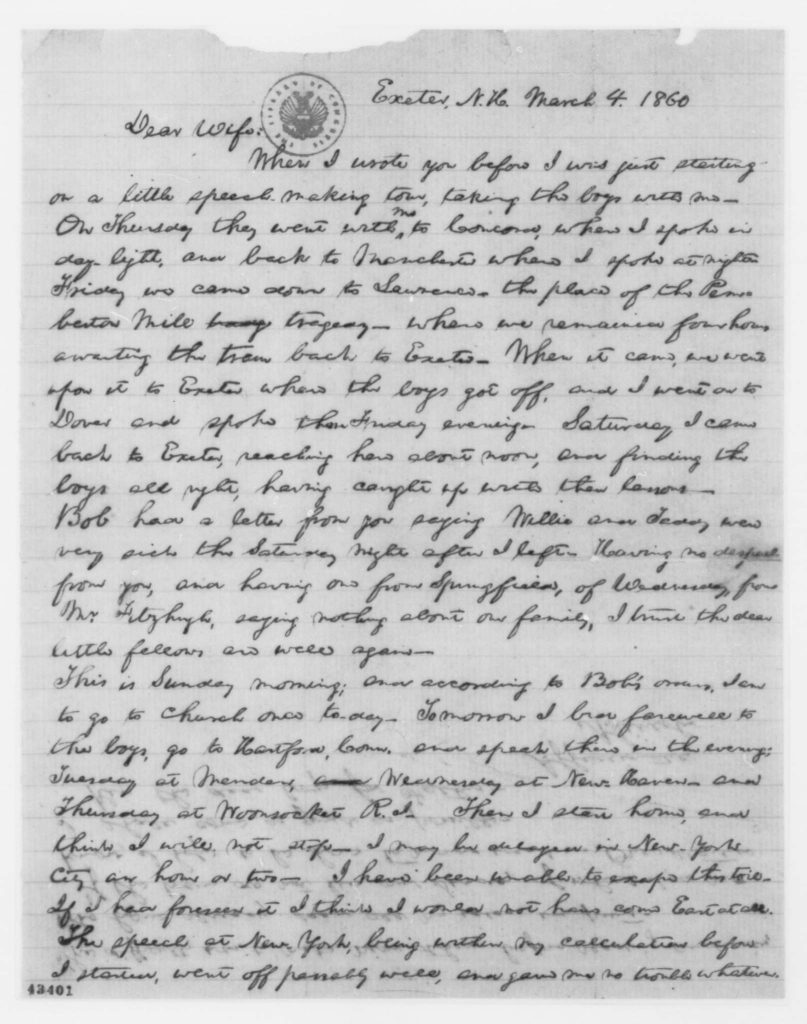 Exeter, N.H. March 4. 1860
THE LIBRARY OF CONGRESS
Dear Wife:
When I wrote you before I was just starting
on a little speech-making tour, taking the boys with me—
On Thursday they went with me to Concord, where I spoke in
day-light, and back to Manchester where I spoke at night.
Friday we came down to Lawrence— the place of the Pem-
berton Mill tragedy— where we remained four hours
awaiting the train back to Exeter— When it came, we went
upon it to Exeter where the boys got off, and I went on to
Dover and spoke there Friday evening— Saturday I came
back to Exeter, reaching here about noon, and finding the
boys all right, having caught up with their lessons—
Bob had a letter from you saying Willie and Taddy were
very sick the Saturday night after I left— Having no despatch
from you, and having one from Springfield, of Wednesday, from
Mr. Fitzhugh, saying nothing about our family, I trust the dear
little fellows are well again—
This is Sunday morning; and according to Bob's orders, I am
to go to church once to-day— Tomorrow I bid farewell to
the boys, go to Hartford, Conn. and speak there in the evening;
Tuesday at Meriden, Wednesday at New-Haven— and
Thursday at Woonsocket R.I— Then I start home, and
think I will not stop— I may be delayed in New-York
City an hour or two— I have been unable to escape this toil—
If I had foreseen it I think I would not have come East at all.
The speech at New-York, being within my calculation before
I started, went off passably well, and gave me no trouble whatever.
43401